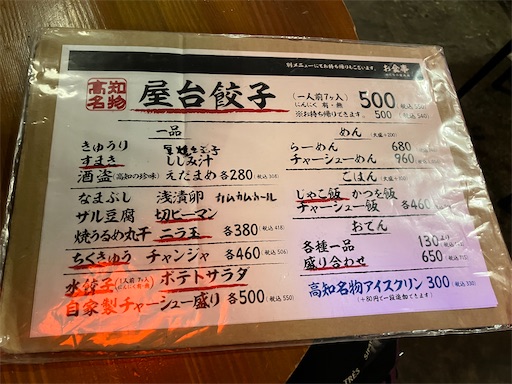 別メニューにてお持ち帰りもございます。 お食事
高知名物 屋台餃子 (一人前7ヶ入) にんにく 有・無 500 (税込 550)
※お持ち帰りできます。 500 (税込 540)
一品
きゅうり
すまき ししみ汁
酒盗(高知の珍味) えだまめ 各280 (税込 308)
なまぶし 浅漬卵 カムカムホール
ザル豆腐 切ピーマン
焼うるめ丸干 ニラ玉 各380 (税込 418)
ちくきゅう チャンジャ 各460 (税込 506)
水餃子 (1人前 7ヶ入) にんにく 有・無 ポテトサラダ
自家製チャーシュー盛り 各500 (税込 550)
めん (大盛+100)
らーめん 680
チャーシューめん 960
ごはん
じゃこ飯 かつを飯
チャーシュー飯 各460
おでん
各種一品 130より
盛り合わせ 650
高知名物アイスクリン 300 (税込 330)
(+80円で一段追加できます)